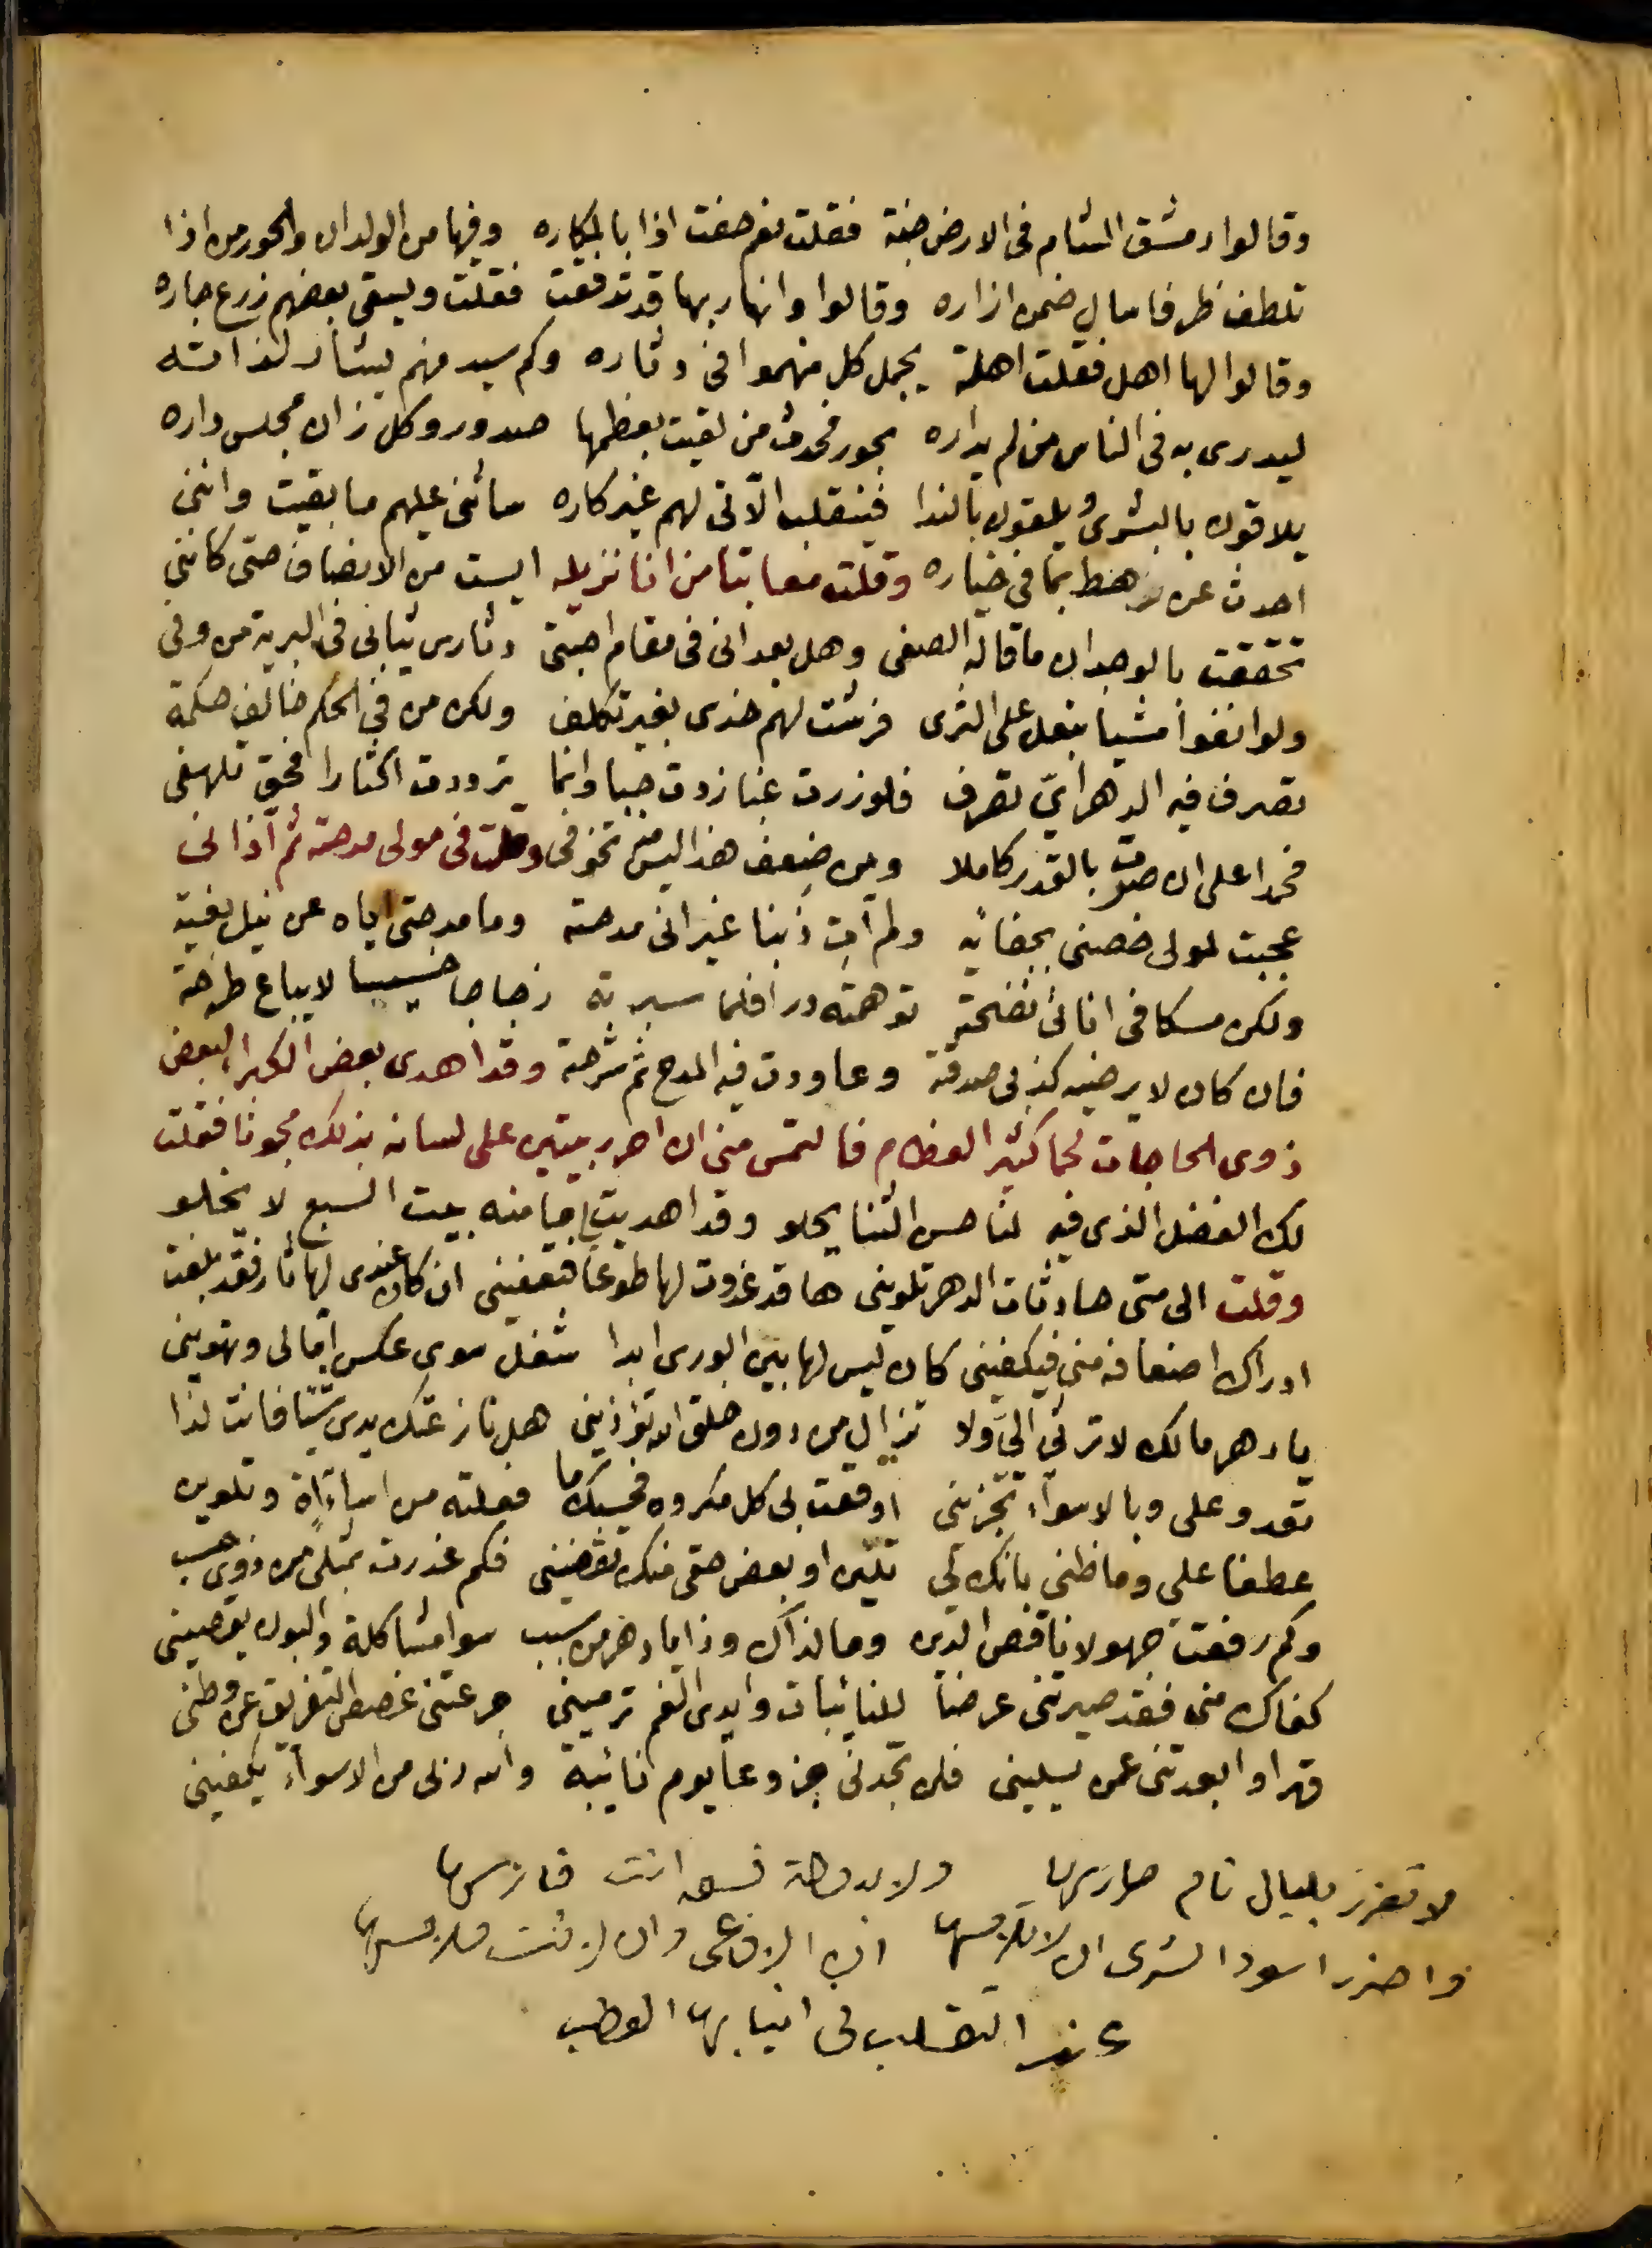 وقالوا دمشق الشام فى الارض جنة فقلت نعم حفت اذا بالمكاره وفيها من الولدان والحور من اذا
تلطف ظرفا سال ضمن ازاره وقالوا وانهار بها قد تدفقت فقلت ويسقى بعضهم زرع جاره
وقالوا لها اهل فقلت اهلة يجمل كل منهموا فى دثاره وكم سيد منهم لذاته
ليدرى به فى الناس من لم يداره بحور فحدث من لقيت بعظمها صدور وكل زان مجلس داره
يلاقون بالبشرى ويلقون بالندا فينقلب الآتى لهم غير كاره سائنى عليهم ما بقيت واننى
احدث عن بما فى خياره وقلت معاتبا من انا نزيله ايست من الانصاف حتى كاننى
تحققت بالوجدان ما قاله الصفى وهل بعد انى فى مقام احبتى دثارى ثيابى فى البرية من وفى
ولو انفوا مشيا بنعل على الثرى فرشت لهم خدى بغير تكلف ولكن من فى الحكم خالف حكمة
تصرف فيه الدهر اىّ تصرف فلو زرت غبا زدت حبا وانما ترددت اكثارا فحق تلهفى
فحمدا على ان صرت بالقدر كاملا ومن ضعف هذا ليس تخوفى وقلت فى مولى مدحته ثم آذانى
عجبت لمولى خصنى بجفائه ولم آت ذنبا غير انى مدحته وما مدحتى اياه عن نيل بغية
ولكن مسكا فى انائى نضحته توهمته درا فلما سبرته زجاجا خسيسا لا يباع طرحته
فان كان لا يرضيه كذبى صدقته وعاودت فيه المدح ثم شرحته وقد اهدى بعض الكبرا لبعض
ذوى الحاجات لحما كثير العظام فالتمس منى ان احرر بيتين على لسانه بذلك مجونا فقلت
لك الفضل الذى فيه لنا حسن الثنا يحلو وقد اهديت منه بيت السبع لا يخلو
وقلت الى متى حادثات الدهر تلوينى ها قد غدوت لها طوعا فتعفينى ان كان عندى لها ثار فقد بلغت
ادراك اضعافه منى فيكفينى كان ليس لها بين الورى ابدا شغل سوى عكس امالى وتهوينى
يا دهر مالك لا ترثى الىّ ولا تزال من دون خلق الله تؤذينى هل نازعتك يدى شيئا فانت لذا
تعدو على وبالاسواء تجزينى اوقعت بى كل مكروه فحسبك ما فعلته من اساءاة وتلوين
عطفا على وما ظنى بانك لى تلين او بعض حقى منك تقضينى فكم غدرت بمثلى من ذوى حسب
وكم رفعت جهولا ناقص الدين وما لذاك وذا يا دهر من سبب سوا مشاكلة والبون يقصينى
كفاك منى فقد صيرتنى غرضا للنائبات وايدى الغم ترمينى جرعتنى غصص التفريق عن وطنى
قهرا وابعدتنى عمن يسلينى فلن تجدنى جزوعا يوم نائبة والله ربى من الاسواء يكفينى
لا تغترر بليال نام حارسها ولا انت فارسها
واحذر اسود الشرى ان لا تلامسها ان الافاعى وان لانت ملامسها
عند التقلب فى انيابها العطب